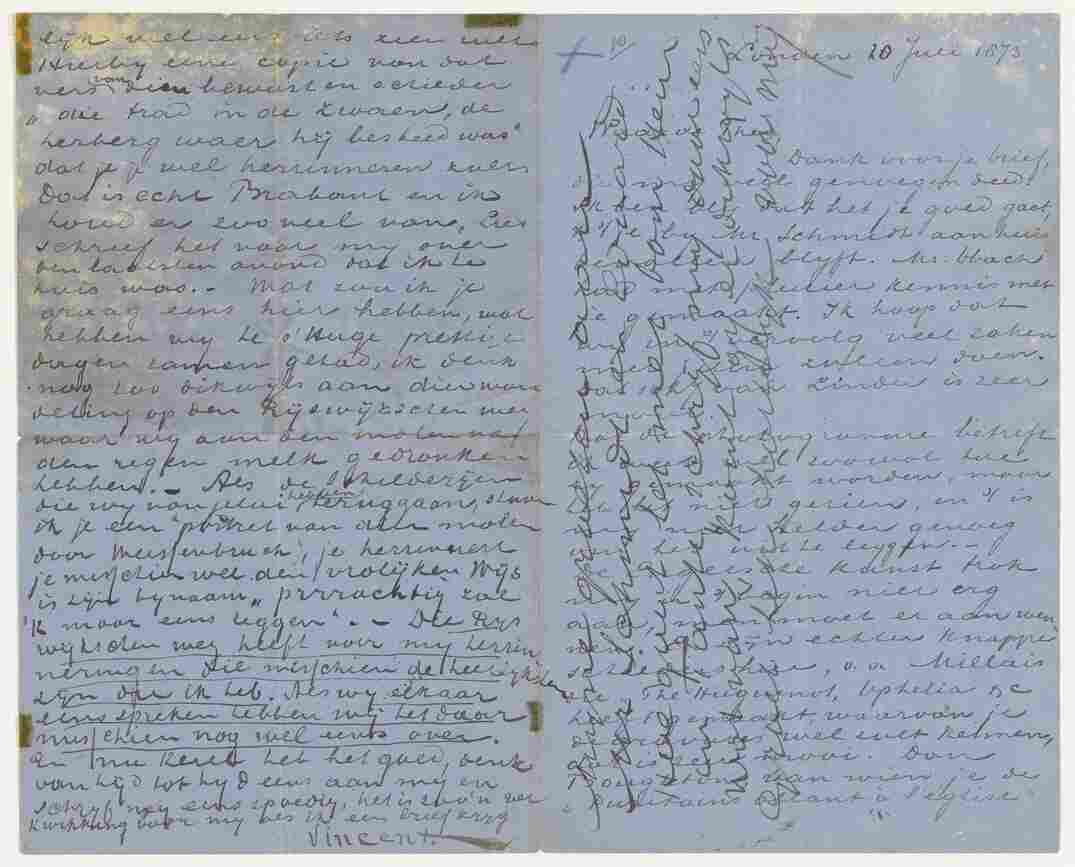 lijk wel eens iets zien zult.
Hierby eene copie van dat
vers van dien bewusten schilder
„die trad in de zwaen, de
herberg waer hij besteed was”
dat je je wel herrinneren zult
Dat is echt Brabant en ik
houd er zooveel van, Lies
schreef het voor my over
den laatsten avond dat ik te
huis was. – Wat zou ik je
graag eens hier hebben, wat
hebben wy te s'Hage prettige
dagen zamen gehad, ik denk
nog zoo dikwyls aan die wan
deling op den Ryswykschen weg
waar wy aan den molen na
den regen melk gedronken
hebben. – Als de schilderyen
die wy van jelui hebben teruggaan, stuur
ik je een portret van dien molen
door Weissenbruch, je herrinnert
je misschien wel. den vrolijken Wys
is zyn bynaam „prrrachtig zal
'k maar eens zeggen”. – Die Rys
wyksche weg heeft voor my herrin
neringen die misschien de heerlijkste
zijn die ik heb. Als wy elkaar
eens spreken hebben wij het daar
misschien nog wel eens over.
En nu Kerel heb het goed, denk
van tyd tot tyd eens aan my en
schryf my eens spoedig, het is zoo'n ver
kwikking voor my als ik een brief kryg
Vincent.
10
Londen 20 Juli 1873
Waarde Theo
Dank voor je brief,
die my veel genoegen deed.
Ik ben bly dat het je goed gaat,
je by Mr. Schmidt aan huis
blyft. Mr. Obach
had met plezier kennis met
je gemaakt. Ik hoop dat
wy in 't vervolg veel zaken
met jelui zullen doen.
Dat schy van Linder is zeer
mooi.
Wat de photogravure betreft
hoe
ze gemaakt worden, maar
heb het niet gezien, en 't is
my niet helder genoeg
om het uit te leggen. –
De Engelsche Kunst trok
my in 't begin niet erg
aan, men moet er aan wen
nen. Er zyn echter knappe
schilders hier, o.a. Millais
die „The Huguenot, Ophelia &c
heeft gemaakt, waarvan je
de gravures wel zult kennen,
't is zeer mooi. Dan
Boughton, van wien je de
„Puritains allant à l'église”
Mynheer Schmidt en Eduard
Hoe gaat het met Oom Hein
en Tante, schryf my daar eens
wat van, komt gy er dikwyls
Groet ze hartelyk voor my